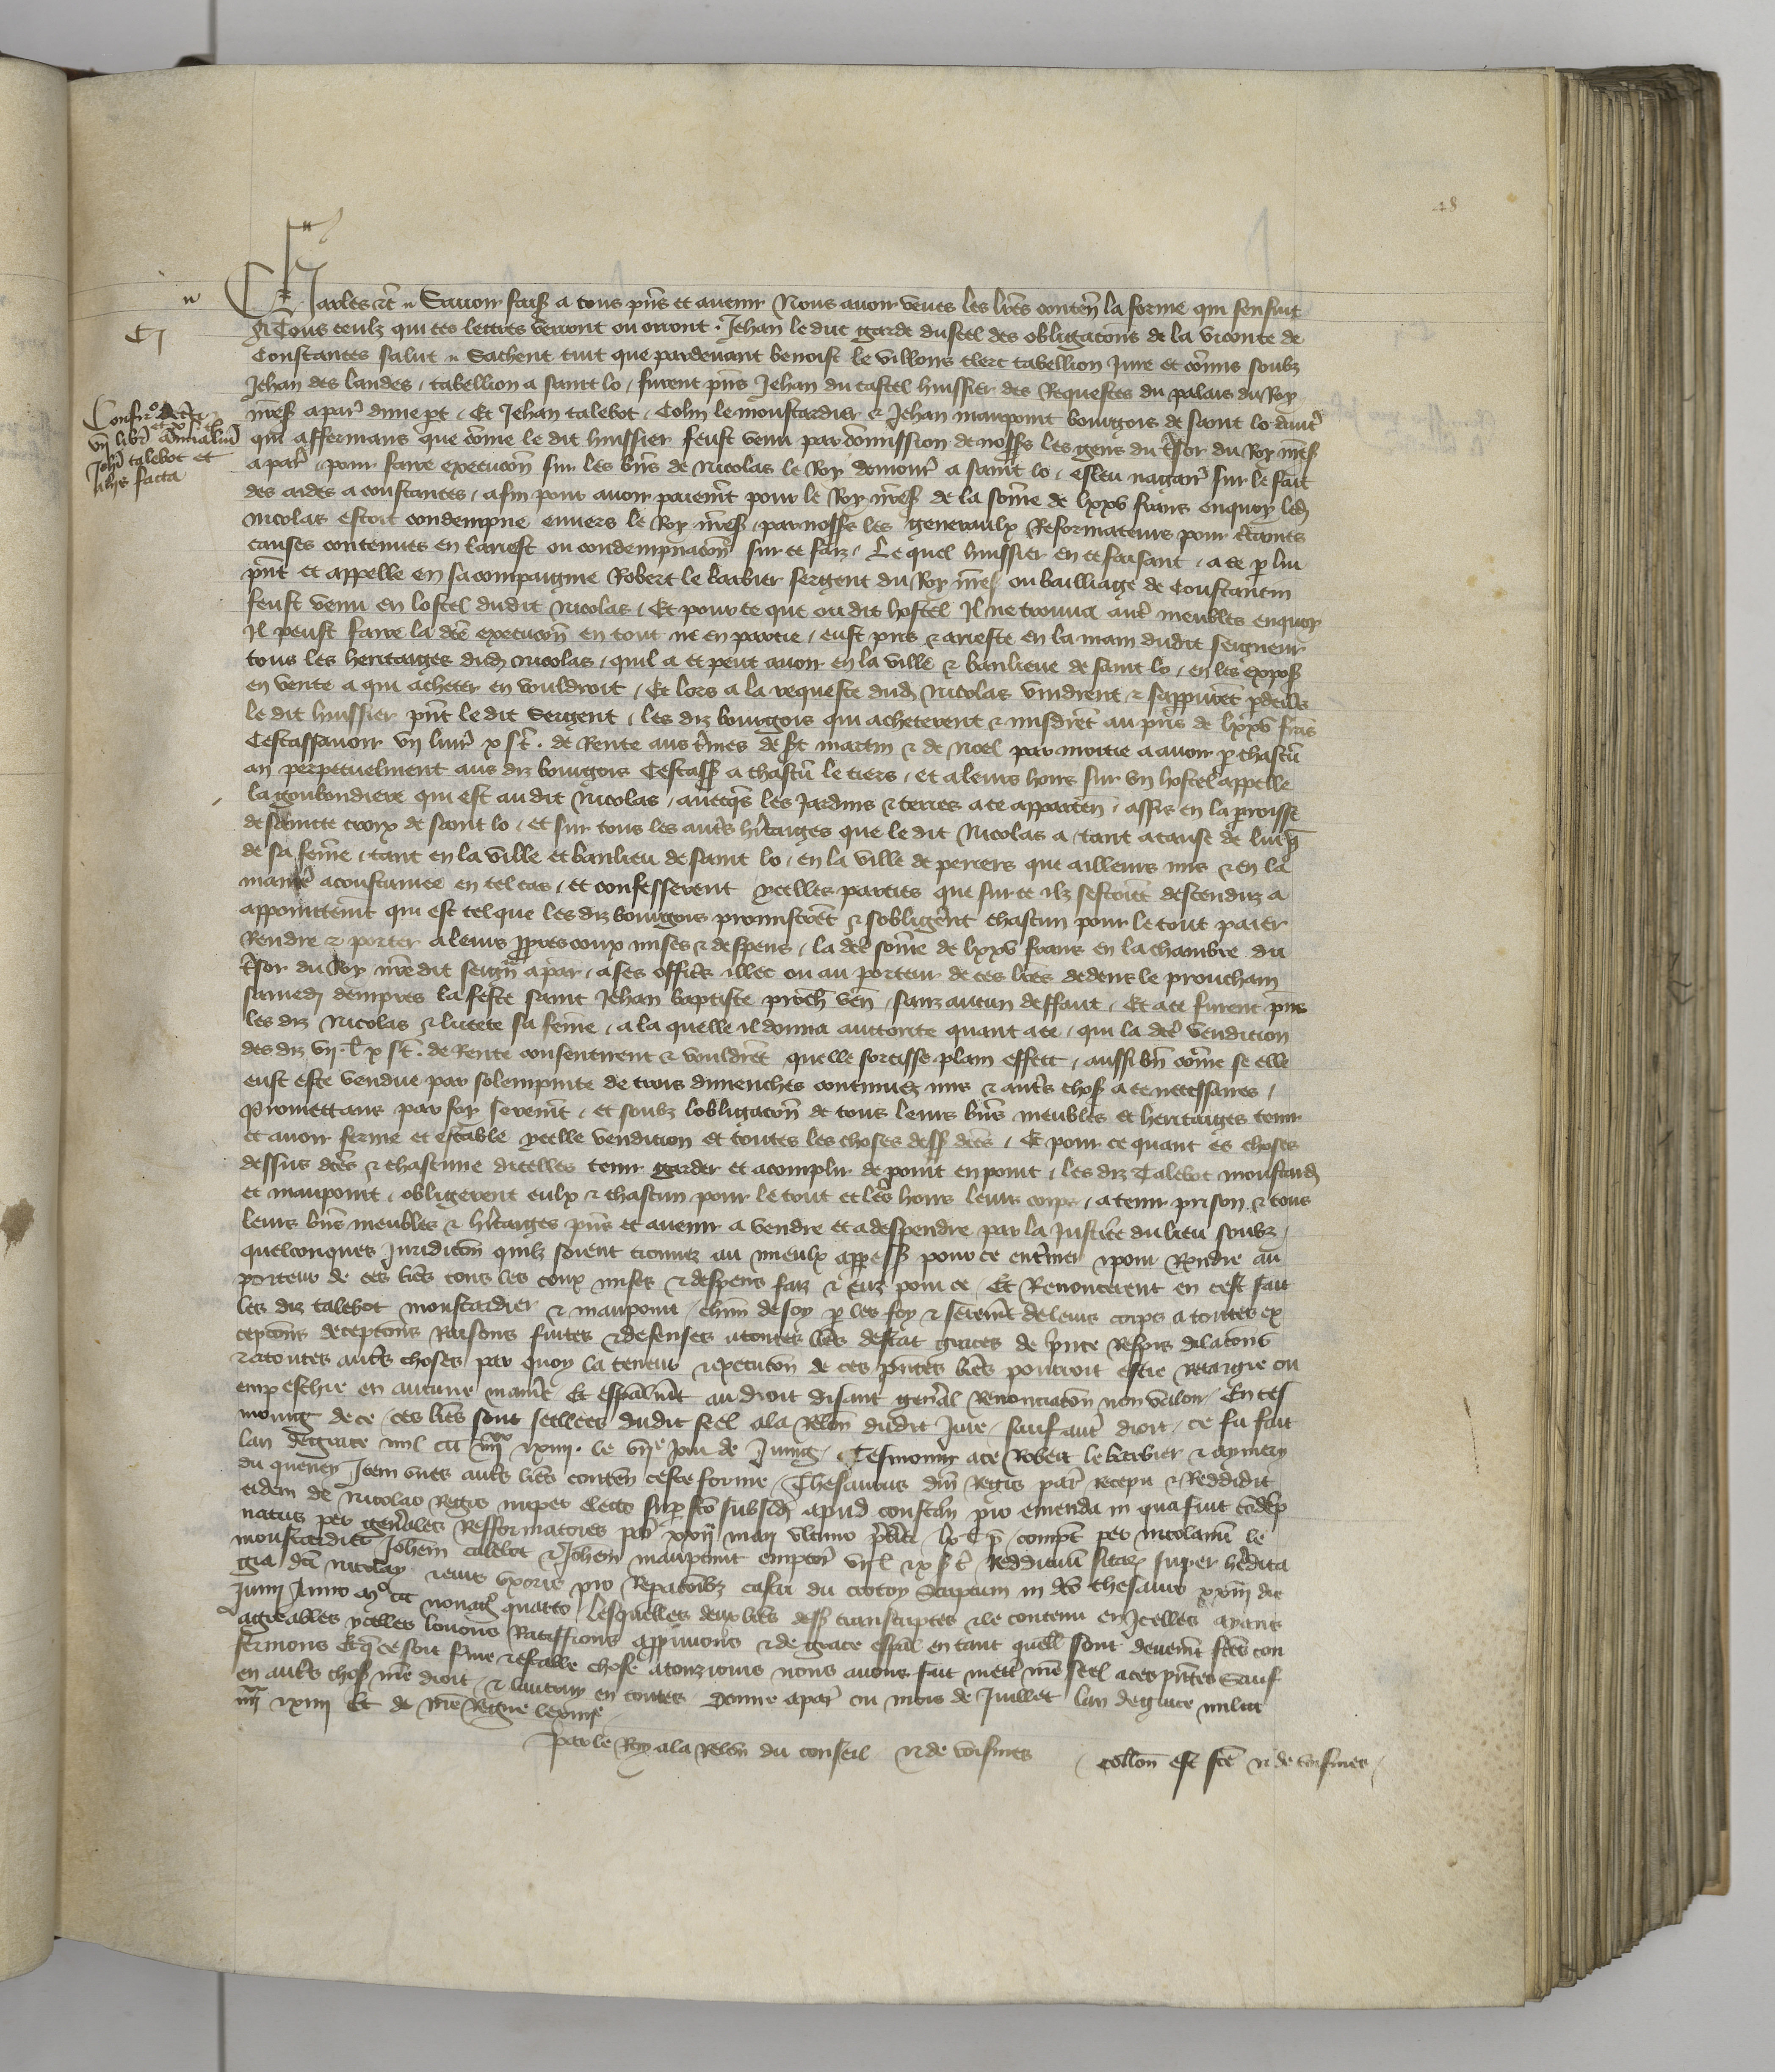 48
Charles etc Savoir faiss a tous pns et avenir Nous avoir veues les lres conten la forme qui sensuit
A Tous ceulz qui ces lettres verront ou orront. Jehan le duc garde du seel des obligacons de la viconte de
Constances salut Sachent tuit que pardevant benoist le villons clerc tabellion Jure et comis soubz
Jehan des landes, tabellion a saint lo, furent pns Jehan du castel huissier des Requestes du palais du Roy
nress a par dune pt, Et Jehan talebot, Colin le moustardier & Jehan maupoint bourgois de saint lo daut
CJ
Confir
vii libr annualiu
Johi talebot et
aliis facta
qui affermans que come le dit huissier feust venu par comission de noss les gens du tsor du Roy nress
a par, pour faire execucon sur les bns de Nicolas le Roy demour a saint lo, esleu nagair sur le fait
des aides a constances, afin pour avoir paiemt pour le Roy nress de la some de lxxv frans en quoy led
nicolas estoit condempne envers le Roy nress, par noss les generaulx Reformateurs pour ctaines
causes contenues en larrest ou condempnacon sur ce faiz, Le quel huissier en ce faisant, a ce p lui
pnt et appelle en sa compaignie Robert le barbier sergent du Roy nress ou bailliage de Constantin
feust venu en lostel dudit Nicolas, Et pour ce que ou dit hostel Il ne trouva aut meubles en quoy
Il peust faire la dce execucon en tout ne en partie, eust pris & arreste en la main dudit seigneur
tous les heritaiges dud Nicolas, quil a et peut avoir en la ville & banlieue de saint lo, en les exposs
en vente a qui acheter en vouldroit, Et lors a la requeste dud Nicolas vindrent & sapparuret pdevs
le dit huissier pnt le dit Sergent, les diz bourgois qui acheterent & misdret au pris de lxxv frans
Cestassavoir vii livr x st. de Rente aus tmes de st martin & de Noel par moitie a avoir p chascu
an perpetuelment aus diz bourgois Cestass a chascu le tiers, et a leurs hoirs sur un hostel appelle
la goubondiere qui est audit Nicolas, avecqs les Jardins & terres a ce apparten, assis en la proisse
de saincte croix de saint lo, et sur tous les auts hitaiges que le dit Nicolas a, tant a cause de lui q
de sa feme, tant en la ville et banlieu de saint lo, en la ville de periers que ailleurs mis & en la
manie acoustumee en tel cas, et confesserent ycelles parties que sur ce ilz sestoiet descenduz a
appointtemt qui est tel que les diz bourgois promistret & sobligerent chascun pour le tout paier
Rendre & porter a leurs ppres coux mises & despens, la dce some de lxxv frans en la chambre du
tsor du Roy nre dit seign a par, a ses offics illec ou au porteur de ces lres dedens le prouchain
samedi dempres la feste saint Jehan baptiste proch ven, sanz aucun deffaut, Et a ce furent pns
les diz Nicolas & lucete sa feme, a la quelle il donna auctorite quant a ce, qui la dce vendicion
des diz vii. l. x st. de Rente consentirent & vouldret quelle sortisse plain effect, aussi bn come se elle
eust este vendue par solempnite de trois dimenches continuez mis & auts choss a ce necessaires,
Promettans par foy seremt, et soubz lobligacon de tous leurs bns meubles et heritaiges tenir
et avoir ferme et estable ycelle vendicion et toutes les choses dess dces, Et pour ce quant es choses
dessus dces & chascune dicelles tenir garder et acomplir de point en point, les diz Talebot moustard
et maupoint, obligerent eulx & chascun pour le tout et les hoirs leurs corps, a tenir prison & tous
leurs bns meubles & hitaiges pns et avenir a vendre et a despendre par la Justice du lieu soubz
quelconques Juridicon quilz soient trouvez au mieulx app pour ce entmer pour Rendre au
porteur de ces lres tous les coux mises & despens faiz & euz pour ce, Et Renoncerent en cest fait
les diz talebot moustardier & maupoint chun de soy p les foy & seremt de leurs corps a toutes ex
cepcons decepcons Raisons fuites & defenses a toutes lres destat graces de pnce Respis dilacons
& a toutes auts choses par quoy la teneur & execucon de ces pntes lres pourroit estre Retargie ou
empeschie en aucune manie Et espalmt au droit disant genal Renonciacon non valoir, En tes
moing de ce, ces lres sont seellees dudit seel a la Relon dudit Jure, sauf aut droit, ce fu fait
lan de grace mil ccc iiiixx & xiiii. le viie Jour de Juing, Tesmoing a ce Robert le barbier & aymery
du quesney Item unes auts lres conten ceste forme, Thesaurus dni Regis par recepit & Reddidit
eidem de Nicolao Regis nuper electo sup fco subsid apud constan pro emenda in qua fuit codep
natus per genales Refformatores par xxii may ultimo pteta lx l p, compt per nicolaum le
moustardier Johem talebot & Johem maupoint emptor vii l & x s t Reddituu sitar super hedita
gia dci nicolay & eius uxoris pro Repacoibz castri du crotoy Scriptum in dco thesauro xxiii die
Junii Anno mo ccc nonag quarto, Lesquelles deux lres dess transcriptes & le contenu en Icelles ayans
agreables ycelles louons Ratiffions appruvons & de grace espal en tant quell sont deuemt fces con
fermons Et q ce soit fme & estable chose a tousjours nous avons fait mett nre seel a ces pntes Sauf
en auts choss nre droit, & lautruy en toutes Donne a par ou mois de Juillet lan de grace mil ccc
iiiixx & xiiii Et de nre Regne le xiiiie
Par le Roy a la Relon du conseil N de voisines Collon est fce N de voisines